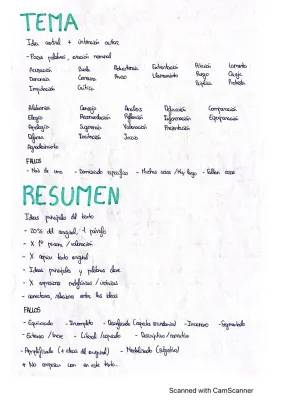 TEMA
Idea central + intención autor
- Pocas palabras, oración nominal
Acusación Burla Advertencia Exhortación Petición Lamento
Denuncia Censura Aviso Llamamiento Ruego Queja
Imputación Crítica Súplica Protesta
Alabanza Consejo Análisis Definición Comparación
Elogio Recomendación Reflexión Información Equiparación
Apología Sugerencia Valoración Presentación
Defensa Invitación Juicio
Agradecimiento
FALLOS
- Más de uno - Demasiado específico - Muchas cosas / Muy largo - Faltan cosas
RESUMEN
Ideas principales del texto
- 20% del original, 1 párrafo
- X 1ª persona / valoración
- X copiar texto original
- Ideas principales y palabras clave
- X expresiones
- conectores, relaciones entre las ideas
FALLOS
- Equivocado - Incompleto - Desenfocado (aspectos secundarios) - Inconexo - Segmentado
- Extenso / breve - Literal / copiado - Descriptivo / narrativo
- Amplificado (+ ideas del original) - Modalizado (subjetivo)
* No empezar con en este texto...
Scanned with CamScanner